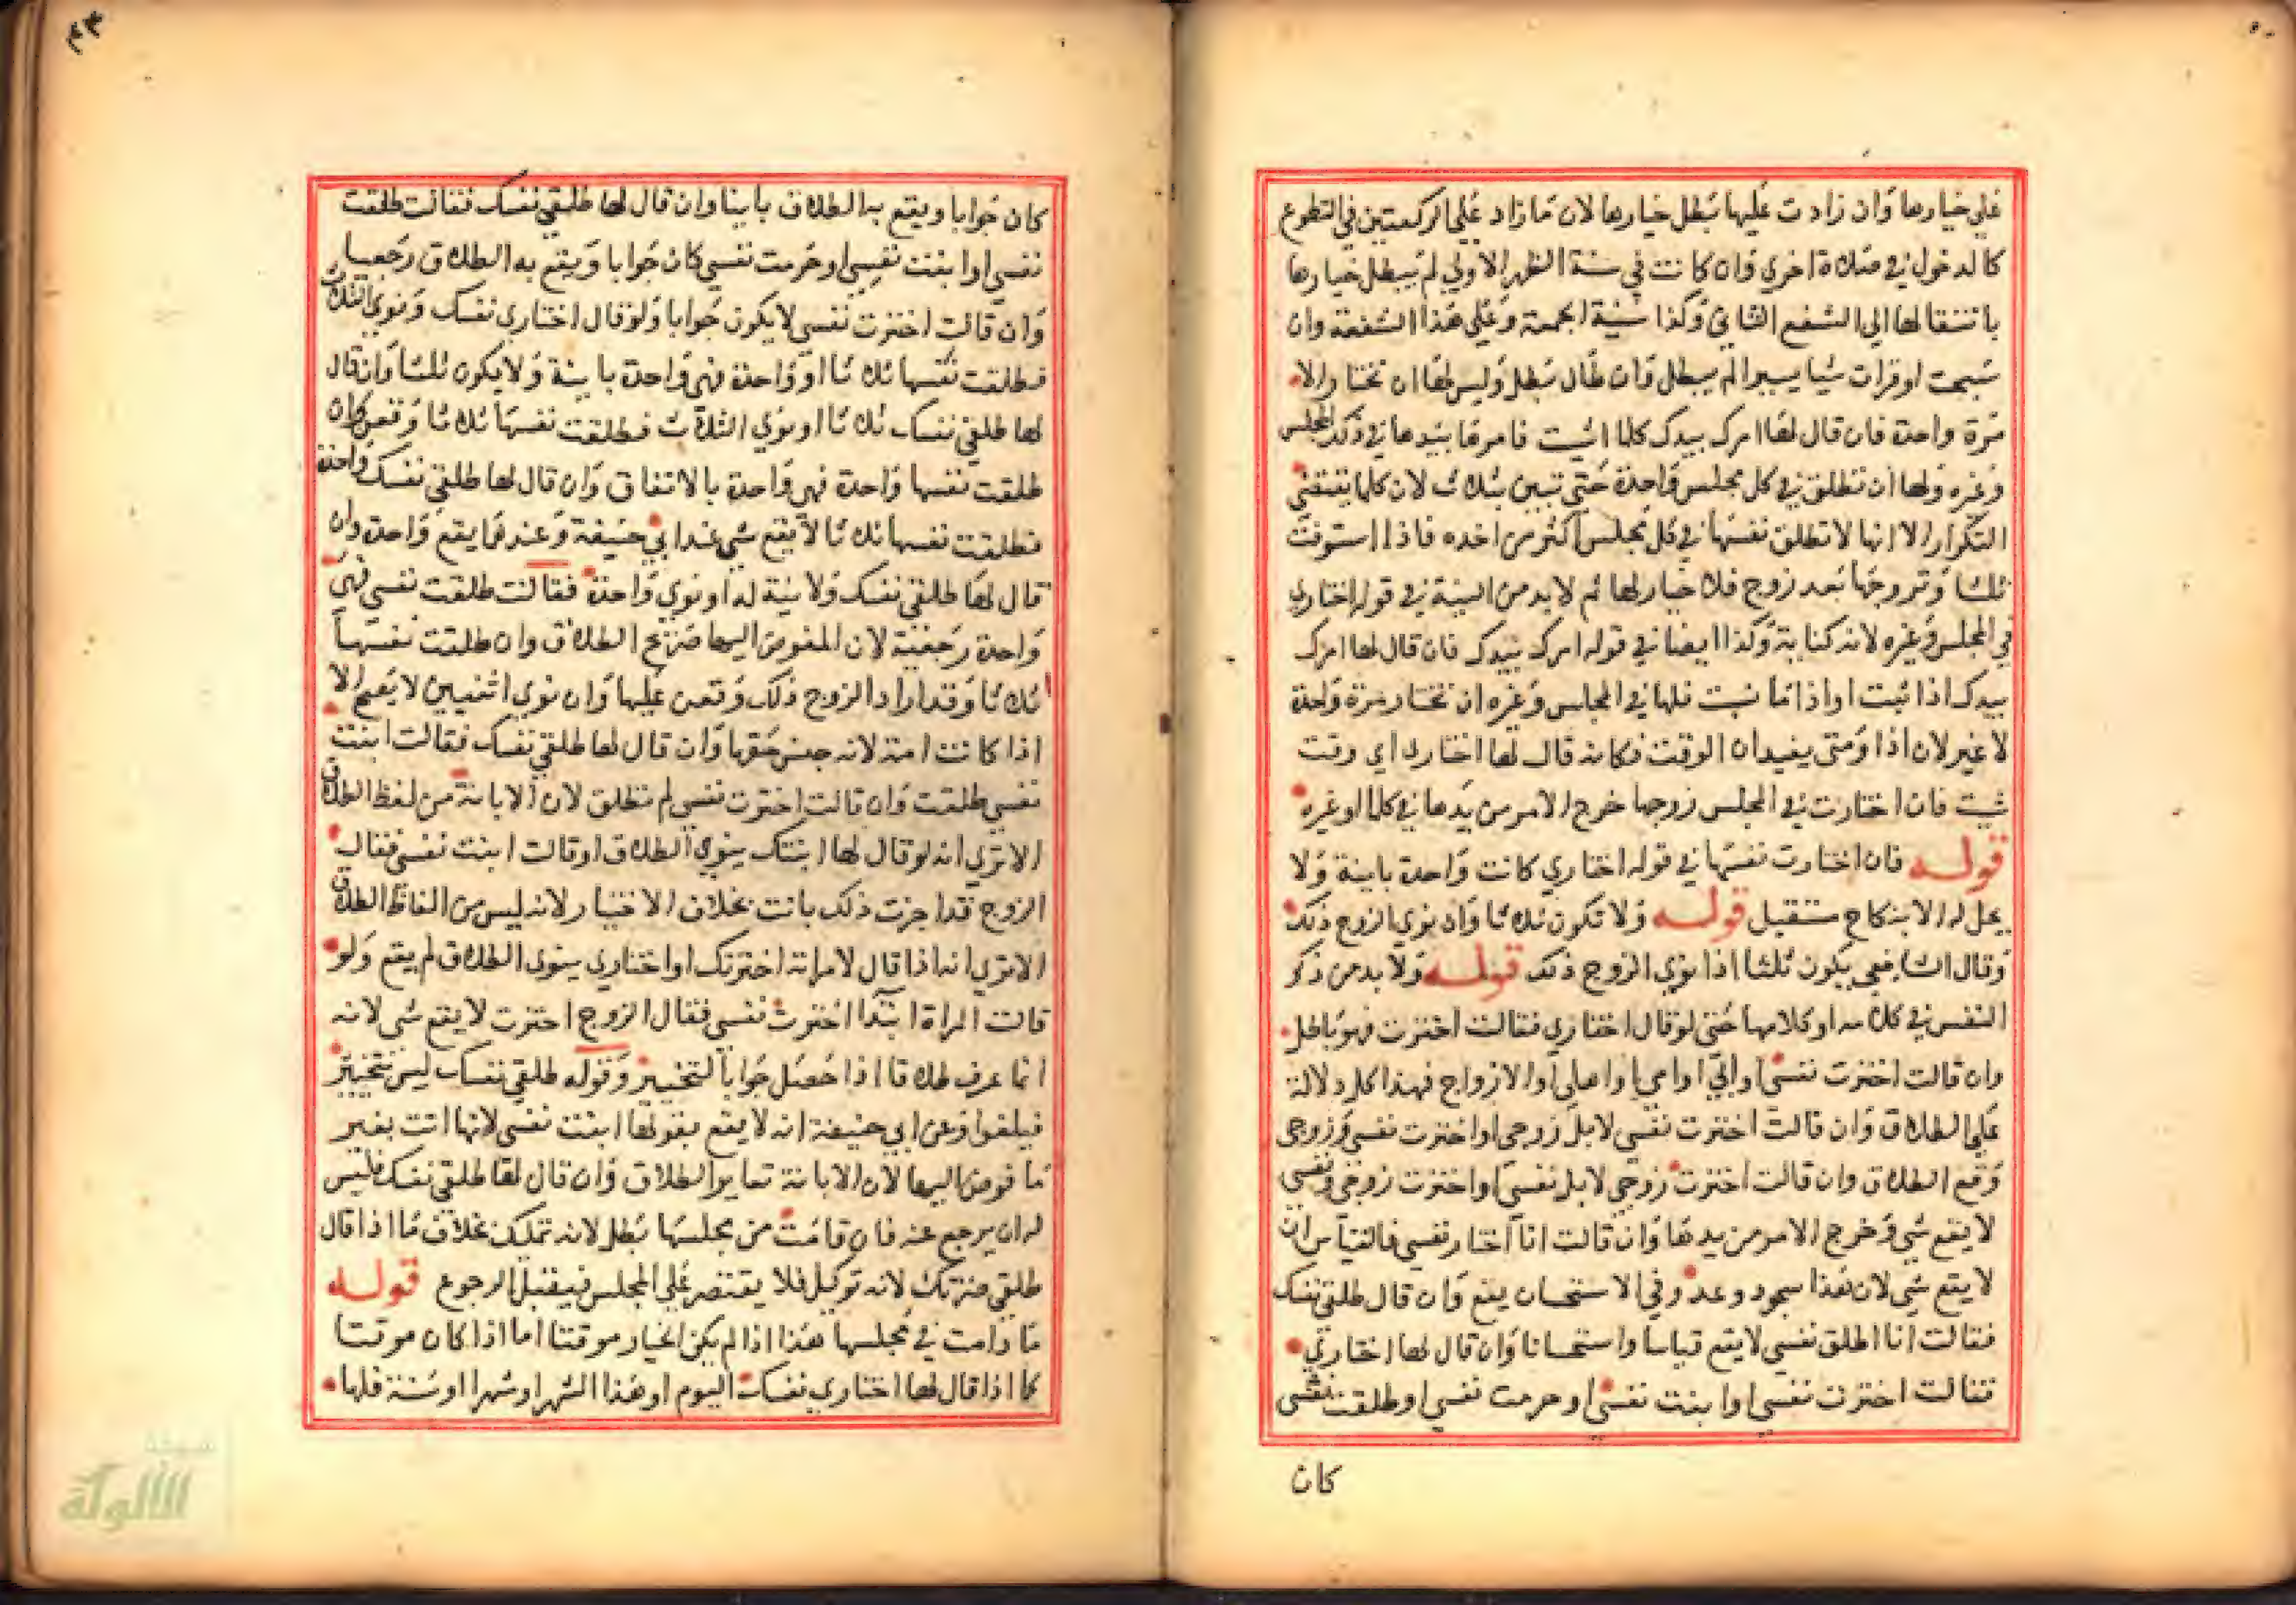 علي خيارها وان زادت عليها بطل خيارها لان ما زاد علي الركعتين في التطوع
كالدخول في صلاة اخري وان كانت في سنة الظهر الاولي لم يبطل خيارها
بانتقالها الي الشفع الثاني وكذا سنة الجمعة وعلي هذا الشفعة وان
سبحت او قرات شيا يسيرا لم يبطل وان طال بطل وليس لها ان تختار الا
مرة واحدة فان قال لها امرك بيدك كلما شيت فامرها بيدها في ذلك المجلس
وغيره ولها ان تطلق في كل مجلس واحدة حتي تبين بثلاث لان كلما يقتضي
التكرار الا انها لا تطلق نفسها في كل مجلس اكثر من اخده فاذا استوفت
ثلثا وتزوجها بعد زوج فلا خيار لها ثم لا بد من النية في قوله اختاري
في المجلس وغيره لانه كناية وكذا ايضا في قوله امرك بيدك فان قال لها امرك
بيدك اذا شيت او اذا ما شيت فلها في المجلس وغيره ان تختار مرة واحدة
لا غير لان اذا ومتي يفيدان الوقت فكانه قال لها اختاري اي وقت
شيت فان اختارت في المجلس زوجها خرج الامر من يدها في كلما او غيره
قوله فان اختارت نفسها في قوله اختاري كانت واحدة باينة ولا
يحل له الا بنكاح مستقبل قوله ولا تكون ثلاثا وان نوي الزوج ذلك
وقال الشافعي يكون ثلثا اذا نوي الزوج ذلك قوله ولا بد من ذكر
النفس في كلامه او كلامها حتي لو قال اختاري فقالت اخترت فهو باطل
وان قالت اخترت نفسي او ابي او امي او اهلي او الازواج فهذا كله دلالة
علي الطلاق وان قالت اخترت نفسي لا بل زوجي او اخترت نفسي وزوجي
وقع الطلاق وان قالت اخترت زوجي لا بل نفسي او اخترت زوجي ونفسي
لا يقع شي وخرج الامر من يدها وان قالت انا اختار نفسي فالقياس ان
لا يقع شي لان هذا مجرد وعد وفي الاستحسان يقع وان قال طلقي نفسك
فقالت انا اطلق نفسي لا يقع قياسا واستحسانا وان قال لها اختاري
فقالت اخترت نفسي او ابنت نفسي او حرمت نفسي او طلقت نفسي
كان
كان جوابا ويقع به الطلاق باينا وان قال لها طلقي نفسك فقالت طلقت
نفسي او ابنت نفسي او حرمت نفسي كان جوابا ويقع به الطلاق رجعيا
وان قالت اخترت نفسي لا يكون جوابا ولو قال اختاري نفسك ونوي الثلاث
فطلقت نفسها ثلاثا او واحدة فهي واحدة باينة ولا يكون ثلثا وان قال
لها طلقي نفسك ثلاثا او نوي الثلاث فطلقت نفسها ثلاثا وقعن وان
طلقت نفسها واحدة فهي واحدة بالاتفاق وان قال لها طلقي نفسك واحدة
فطلقت نفسها ثلاثا لا يقع شي عند ابي حنيفة وعندهما يقع واحدة وان
قال لها طلقي نفسك ولا نية له او نوي واحدة فقالت طلقت نفسي فهي
واحدة رجعية لان المفوض اليها صريح الطلاق وان طلقت نفسها
ثلاثا وقد اراد الزوج ذلك وقعن عليها وان نوي اثنتين لا يقع الا
اذا كانت امة لانه جنس حقها وان قال لها طلقي نفسك فقالت ابنت
نفسي طلقت وان قالت اخترت نفسي لم تطلق لان الابانة من لفظ الطلاق
الا تري انه لو قال لها ابنتك ينوي الطلاق او قالت ابنت نفسي فقال
الزوج قد اجزت ذلك بانت بخلاف الاختيار لانه ليس من الفاظ الطلاق
الا تري انه اذا قال لامراته اخترتك او اختاري ينوي الطلاق لم يقع ولو
قالت المراة ابتدا اخترت نفسي فقال الزوج اجزت لا يقع شي لانه
انما عرف طلاقا اذا حصل جوابا لتخيير وقوله طلقي نفسك ليس بتخيير
فيلغوا وعن ابي حنيفة انه لا يقع بقولها ابنت نفسي لانها اتت بغير
ما فوض اليها لان الابانة تغاير الطلاق وان قال لها طلقي نفسك فليس
له ان يرجع عنه فان قامت من مجلسها بطل لانه تمليك بخلاف ما اذا قال
طلقي ضرتك لانه توكيل فلا يقتصر علي المجلس فيقبل الرجوع قوله
ما دامت في مجلسها هذا اذا لم يكن الخيار موقتا اما اذا كان موقتا
كما اذا قال لها اختاري نفسك اليوم او هذا الشهر او شهرا او سنة فلها
الألوكة